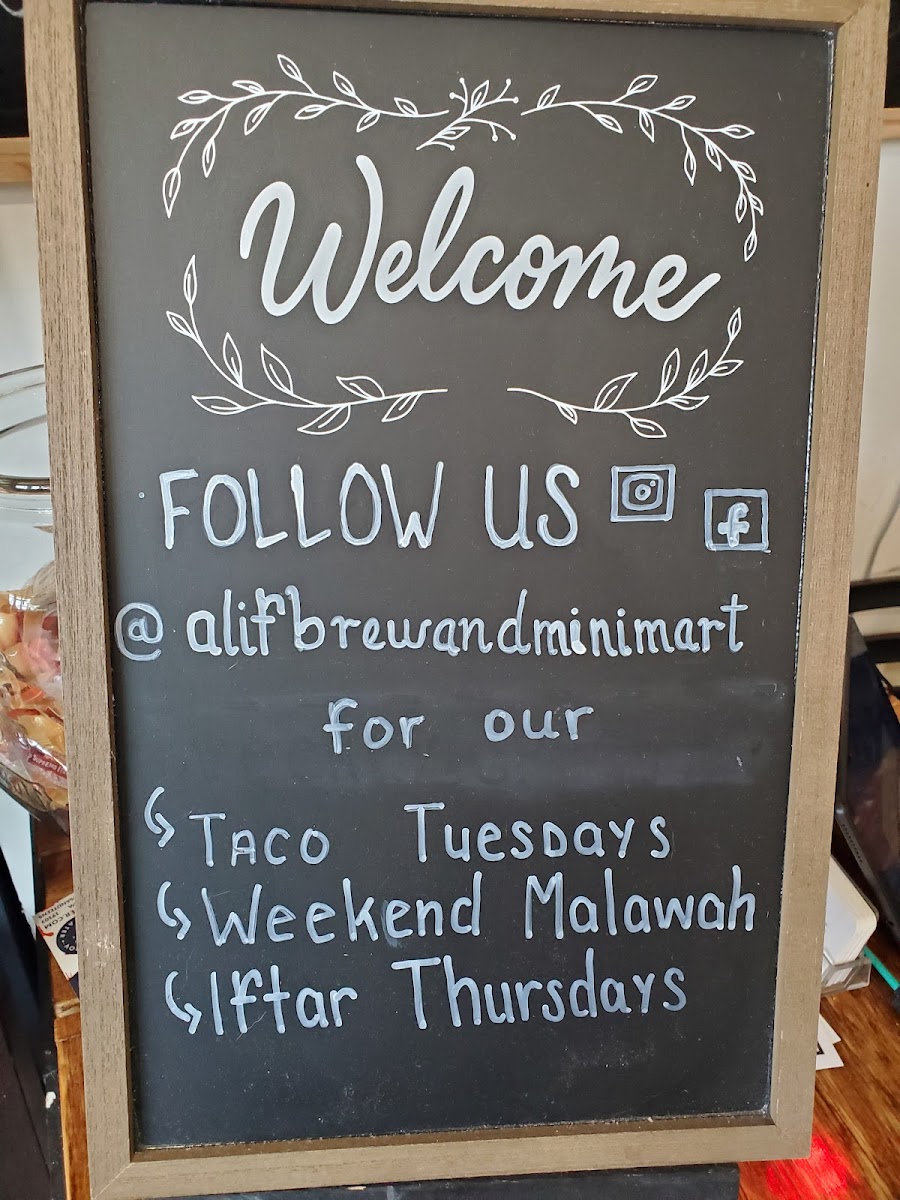 Welcome
FOLLOW US
@alifbrewandminimart
for our
TACO TUESDAYS
Weekend Malawah
Iftar Thursdays